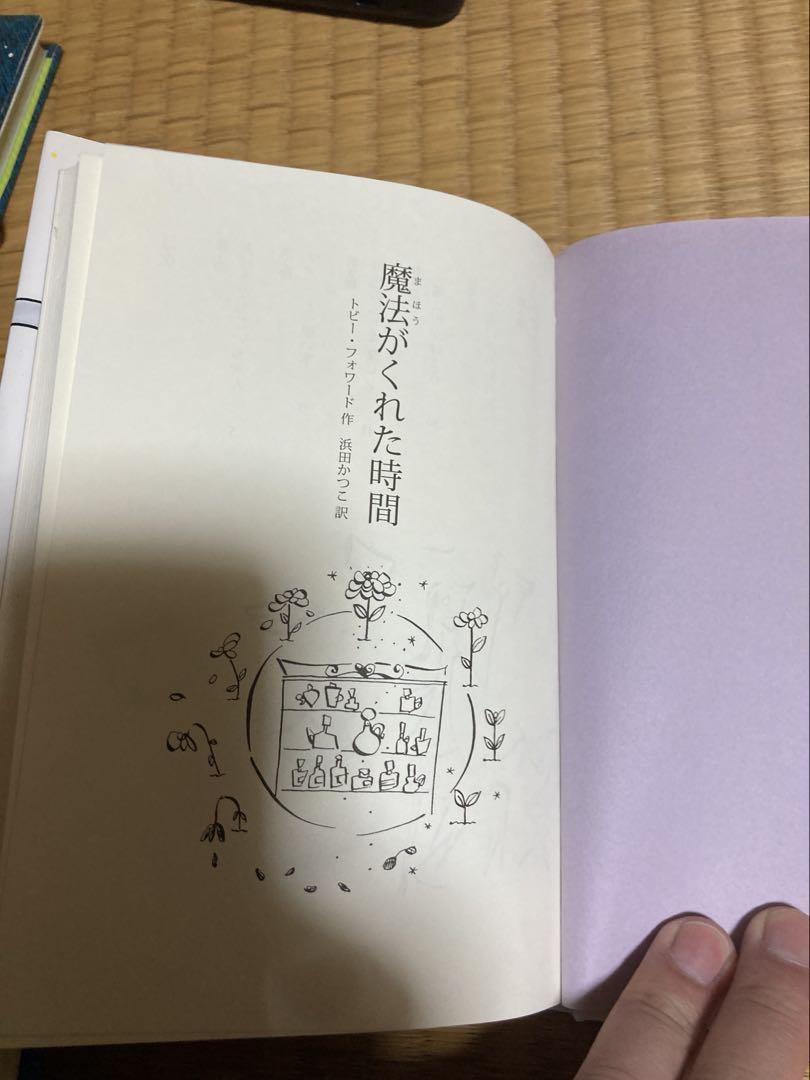 魔法がくれた時間
まほう
トビー・フォワード 作　浜田かつこ 訳